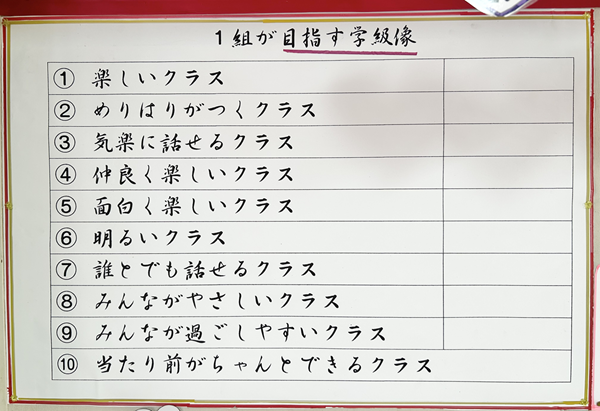 1組が目指す学級像
① 楽しいクラス
② めりはりがつくクラス
③ 気楽に話せるクラス
④ 仲良く楽しいクラス
⑤ 面白く楽しいクラス
⑥ 明るいクラス
⑦ 誰とでも話せるクラス
⑧ みんながやさしいクラス
⑨ みんなが過ごしやすいクラス
⑩ 当たり前がちゃんとできるクラス